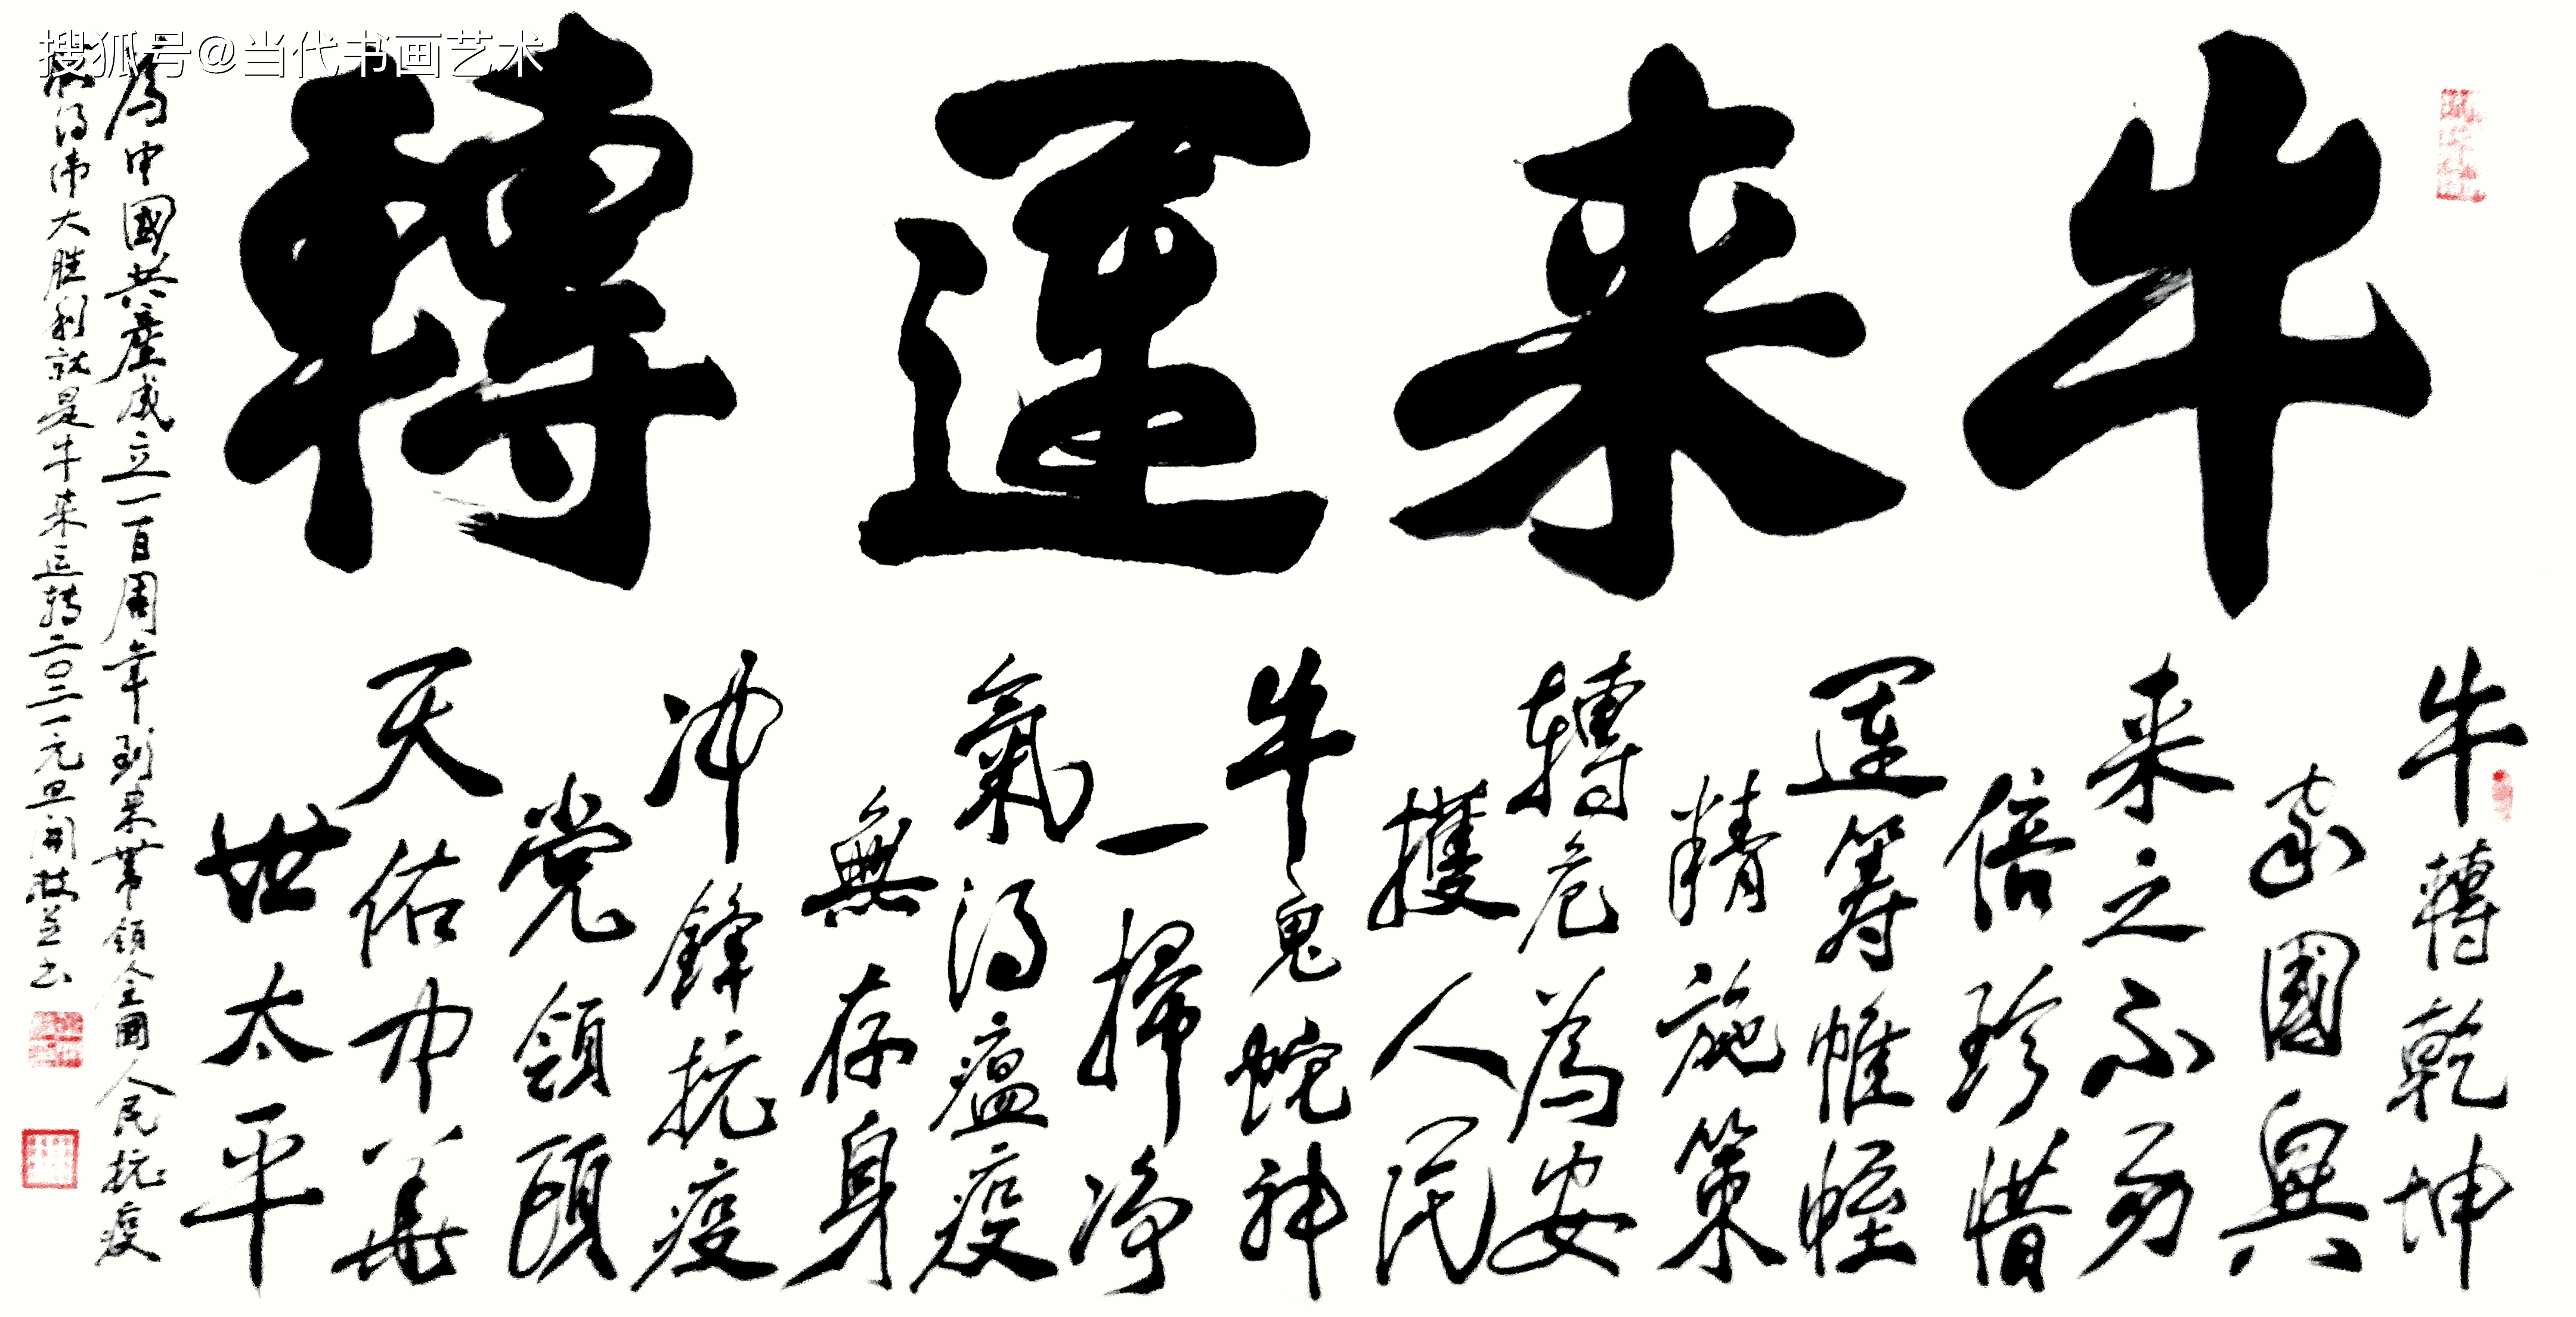 搜狐号@当代书画艺术
牛来運轉
牛轉乾坤
家國興
来之不易
倍珍惜
運籌帷幄
精施策
轉危為安
獲人民
牛鬼蛇神
一掃净
氣得瘟疫
無存身
冲鋒抗疫
党領頭
天佑中華
世太平
為中國共產成立一百周年到来帶領全國人民抗疫
得伟大胜利就是牛来运转二〇二一元旦開林并书